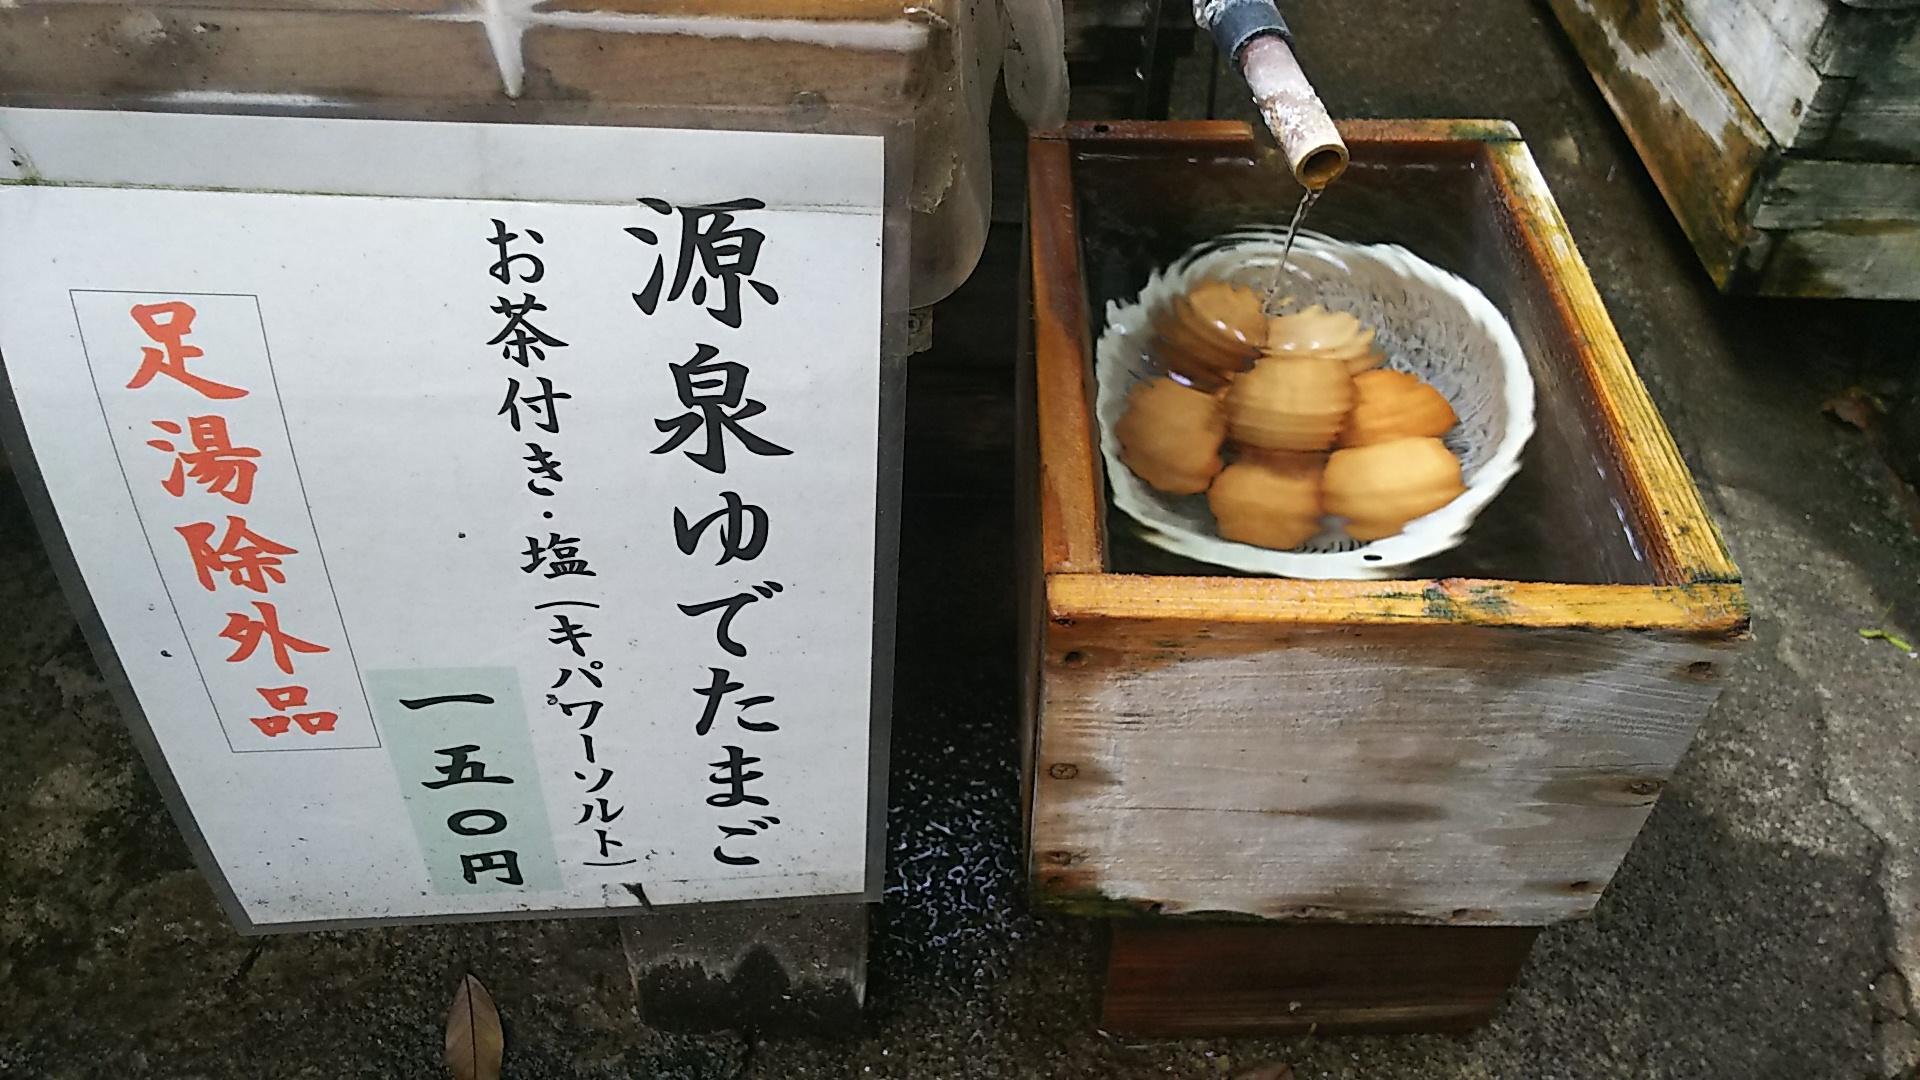 源泉ゆでたまご
お茶付き・塩(キパワーソルト)
一五〇円
足湯除外品